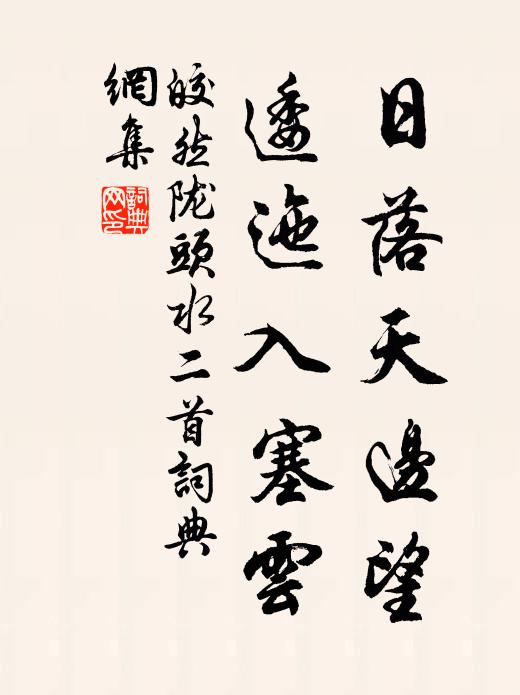 日落天邊望
逶迤入塞雲
皎然陇頭水二首詞典
網集
詞典
网印